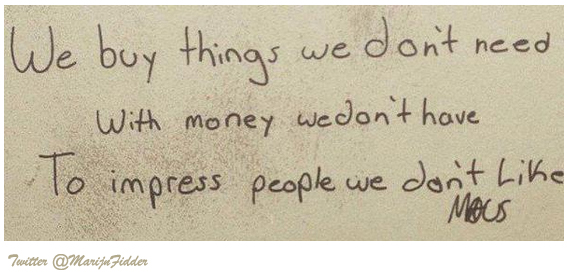 We buy things we don't need
With money we don't have
To impress people we don't Like
Twitter @MarijnFidder